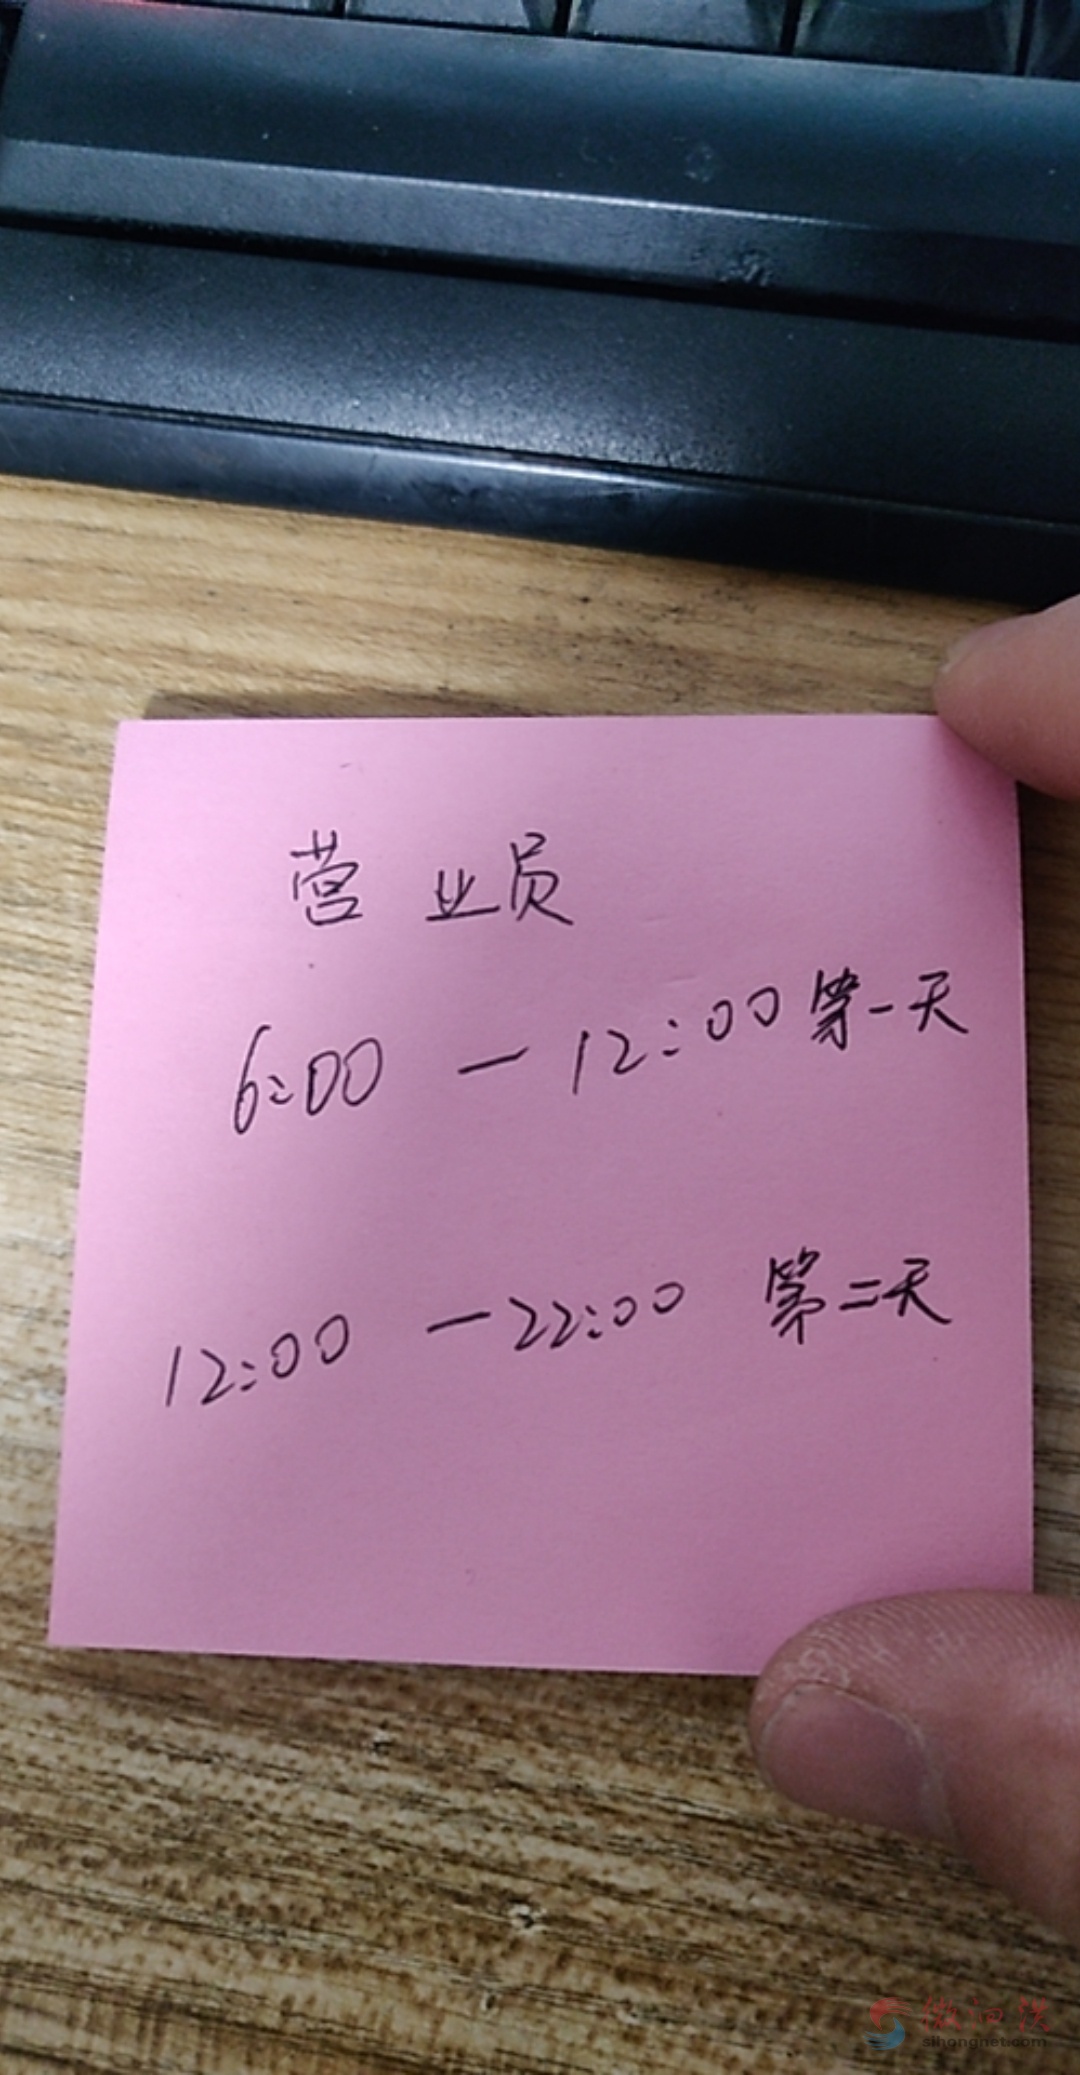 营业员
6:00 — 12:00 第一天
12:00 — 22:00 第二天
微泗洪
sihongnet.com